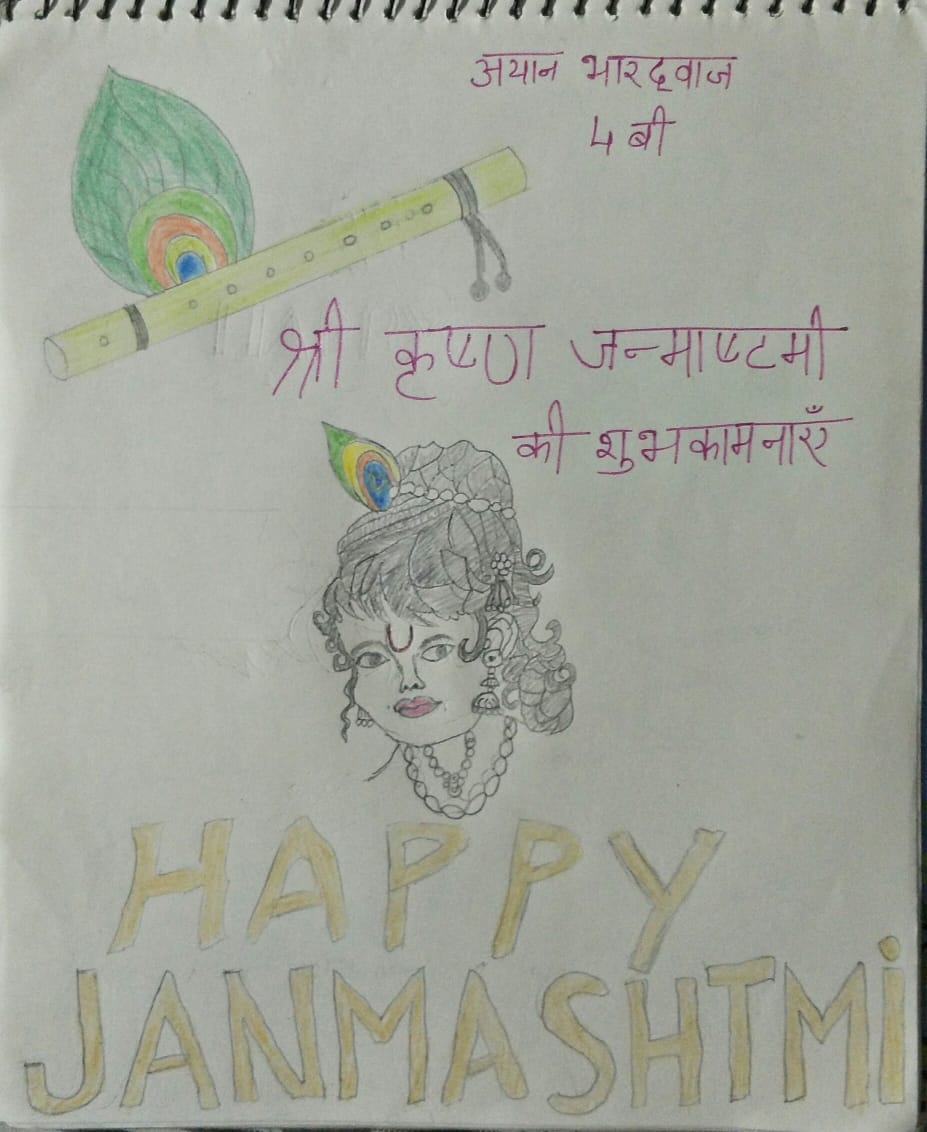 अयान भारद्वाज
4 बी
श्री कृष्ण जन्माष्टमी
की शुभकामनाएँ
HAPPY
JANMASHTMi